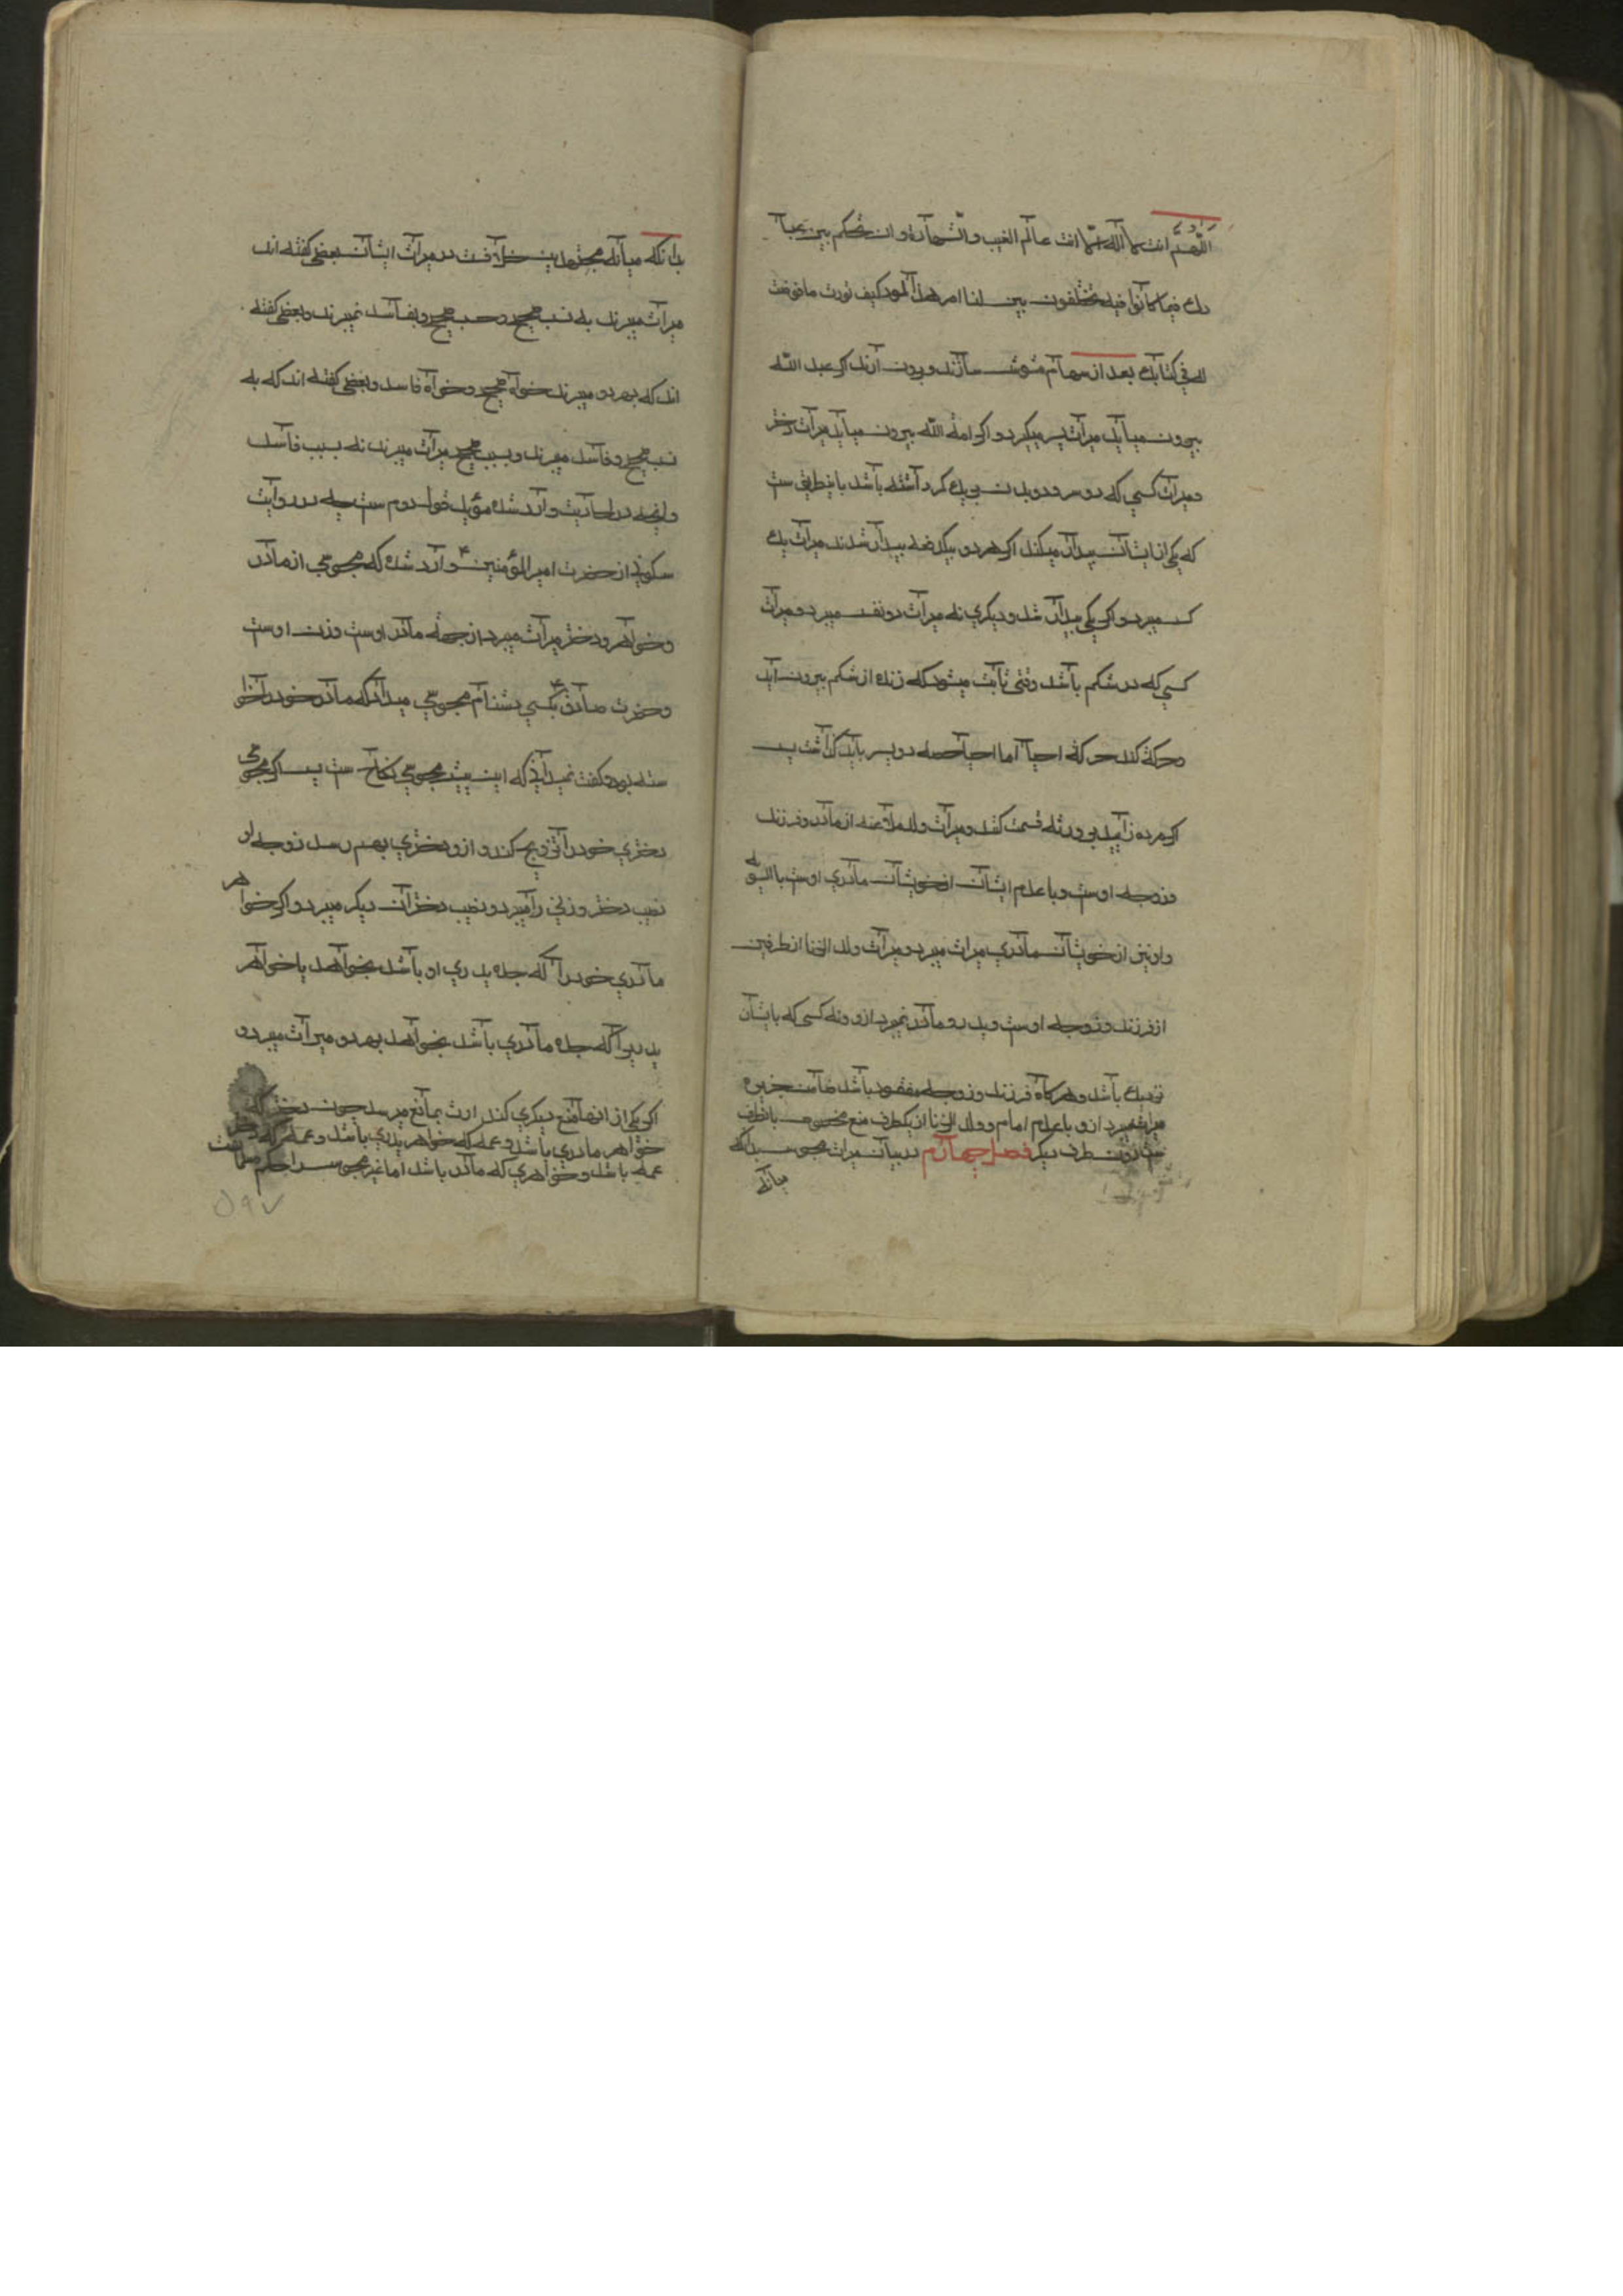 اللهم انت الله لا اله الا انت عالم الغيب والشهادة وان تحكم بين عبا
دك فيما كانوا فيه يختلفون بين لنا امر هذا المولود كيف تورث ما فرضت
له في كتابك بعد از سهام مشوش سازند و بيرون ارند اكر عبد الله
بيرون ميايد ميراث پسر ميكيرد و اكر امة الله بيرون ميايد ميراث دختر
و ميراث كسي كه دو سر و دو بدن بر يك كمر داشته باشد باينطريق ست
كه يكي از ايشان بيدار ميكند اكر هر دو بيكدفعه بيدار شدند ميراث يك
كس ميبرد و اكر يكي بيدار شد و ديكري نه ميراث دو نفس ميبرد و ميراث
كسي كه در شكم باشد وقتي ثابت ميشود كه زنده از شكم بيرون ايد
و حركة كند حركة احيا اما احتياطا حصه دو پسر بايد كذاشت پس
اكر مرده زاييد بر ورثه قسمت كنند و ميراث ولد ملاعنه از مادر و فرزند
و زوجه اوست و با عدم ايشان از خويشان مادري اوست بالسويه
و او نيز از خويشان مادري ميراث ميبرد و ميراث ولد الزنا از طرفين
از فرزند و زوجه اوست و پدر و مادر نميبرد ازو و نه كسي كه بايشان
نزديك باشد و هر كاه فرزند و زوجه مفقود باشد ضامن جريره
ميراث ميبرد ازو با عدم امام و ولد الزنا از يكطرف منع مخصوص بانطرف
ست نه بطرف ديكر فصل چهارم در بيان ميراث مجوس بدانكه
ميانه
بدانكه ميانه مجتهدين خلافت در ميراث ايشان بعضي كفته اند
ميراث ميبرند به نسب صحيح و سبب صحيح و بفاسد نميبرند و بعضي كفته
اند كه بهر دو ميبرند خواه صحيح و خواه فاسد و بعضي كفته اند كه به
نسب صحيح و فاسد ميبرند و بسبب صحيح ميراث ميبرند نه بسبب فاسد
و انچه در احاديث وارد شده مؤيد قول دوم ست چه در روايت
سكوني از حضرت امير المؤمنين ع وارد شده كه مجوسي از مادر
و خواهر و دختر ميراث ميبرد از جهة مادر اوست و زن اوست
و حضرت صادق ع بكسي دشنام مجوسي ميداد كه مادر خود را خوا
سته بود و كفت نميداني كه اين پيش مجوسي نكاح ست پس اكر مجوسي
دختري خود را تزويج كند و ازو دختري بهم رسد زوجه او
نصيب دختر و زني را ميبرد و نصيب دختران ديكر ميبرد و اكر خواهر
مادري خود را كه جده پدري او باشد بخواهد يا خواهر
پدري را كه جده مادري باشد بخواهد بهر دو ميراث ميبرد و
اكر يكي از انها منع ديكري كند ارث بمانع ميرسد چون دختر كه
خواهر مادري باشد و عمه كه خواهر پدري باشد و عمه كه دختر
عمه باشد و خواهري كه مادر باشد اما غير مجوس را حكم
۵۹۷